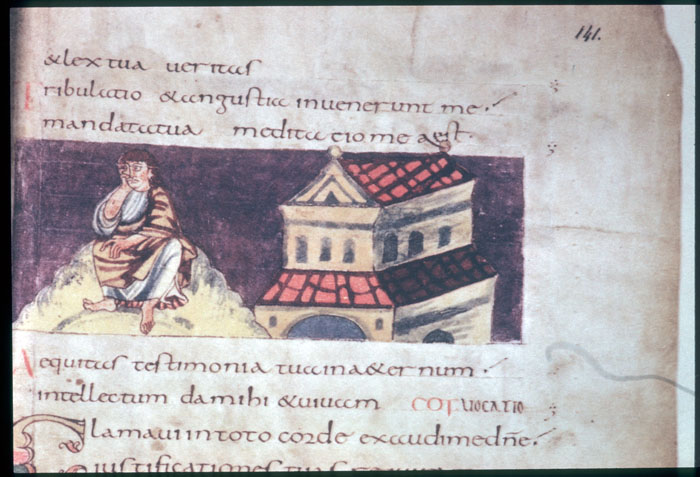 141.
& lex tua veritas
Tribulatio & angustia invenerunt me
mandata tua meditatio mea est
equitas testimonia tua in&ernum
intellectum da mihi & vivam COP VOCATIO
Clamavi in toto corde exaudi me dn̄e
iustificationes tuas